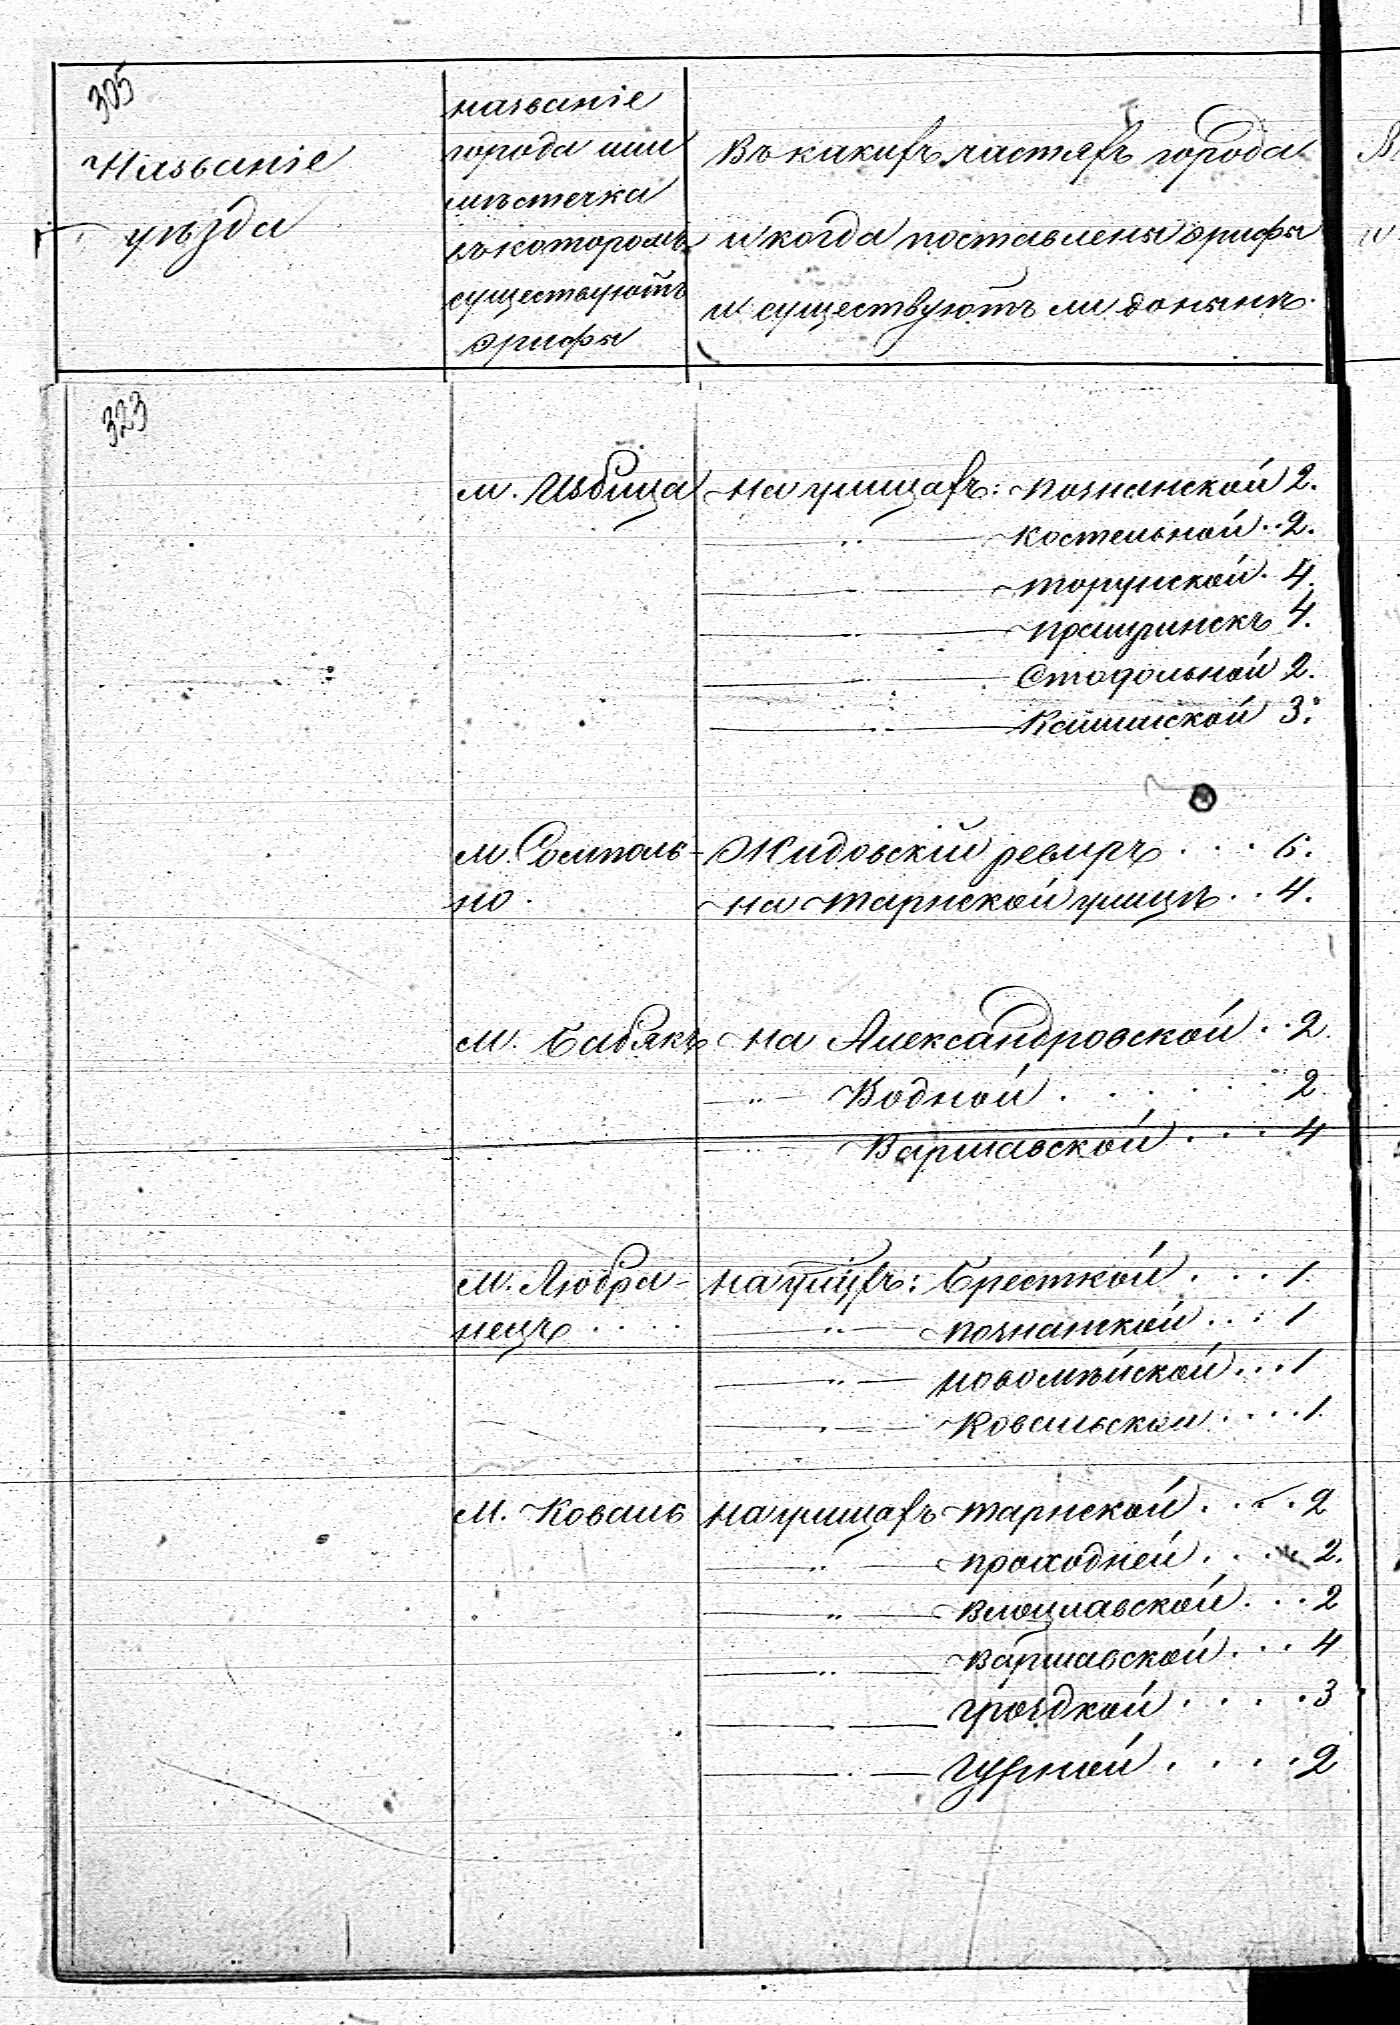 305
Названіе
уѣзда
названіе
города или
мѣстечка
въ которомъ
существуютъ
эрифы
Въ какихъ частяхъ города
и когда поставлены эрифы
и существуютъ ли донынѣ.
323
м. Избица на улицахъ: познанской 2.
—〃— костельной .. 2.
—〃— торунской . 4.
—〃— 4.
—〃— Стодольной 2.
—〃— Калишской 3.
м. Сомполь- Жидовскій ревиръ . . . 6.
но. на тарнской улицѣ .. 4.
м. Бабякъ на Александровской .. 2.
—〃— Водной . . . . . 2
—〃— Варшавской . . . 4
м. Любра- на улицхъ: Бресткой . . . 1
нецъ . . . . —〃— познанской . . . 1
—〃— новомѣйской . . . 1
—〃— Ковальской . . . . 1.
М. Коваль на улицахъ тарнской . . . . 2
—〃— проходней . . . . 2.
—〃— влоцлавской . . . 2
—〃— варшавской . . . 4
—〃— гродзкой . . . . 3
—〃— гурной . . . . 2